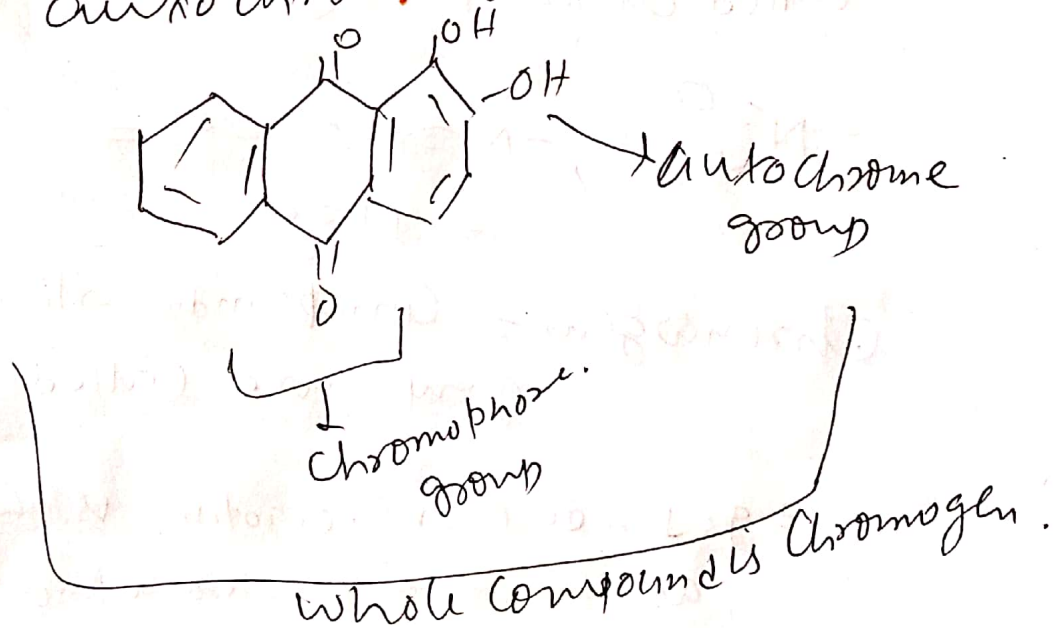 O
OH
-OH
autochrome
group
O
Chromophore.
group
whole Compound is Chromogen.